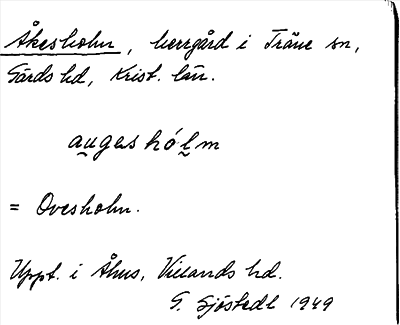 Åkesholm, herrgård i Träne sn,
Gärds hd, Krist. län.
au̯gas hó l̯m
= Ovesholm.
Uppt. i Åhus, Villands hd.
G. Sjöstedt 1949